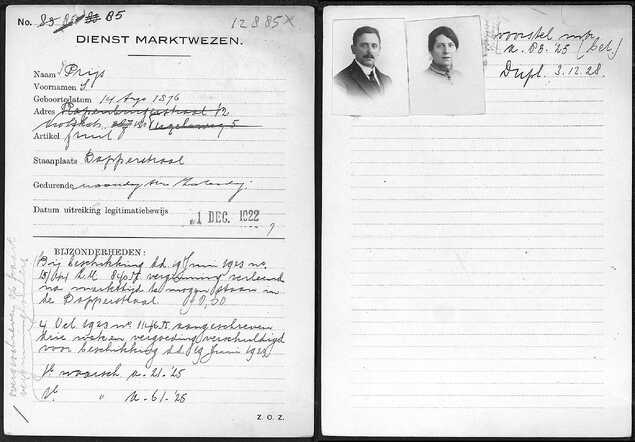 No. 85 85 85 85
12885 X
DIENST MARKTWEZEN.
Naam Prijs
Voornamen S.
Geboortedatum 14 Aug 1876
Adres Rapenburgerstraat 12
Vegaweg 5
Artikel fruit
Staanplaats Dapperstraat
Gedurende maandag t/m Zaterdag
Datum uitreiking legitimatiebewijs
1 DEC. 1922
BIJZONDERHEDEN:
Bij beschikking d.d. 19 Juni 1923 no.
L.M. 1923 vergunning verleend
na markttijd te mogen staan in
de Dapperstraat f 0,50
4 Oct. 1923 no. 1146 M aangeschreven
drie weken vergoeding verschuldigd
voor beschikking d.d. 19 Juni 1923
1e waarsch. a. 21.'25
2e " a. 61.'25
Z. O. Z.
voorstel
a. 83.'25
Dupl. 3.12.28.